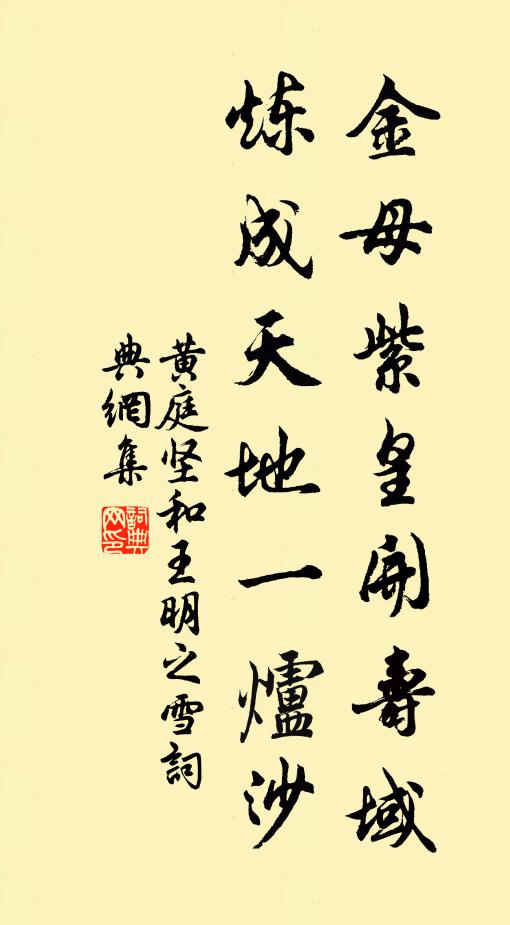 金母紫皇開壽域
炼成天地一爐沙
黄庭坚和王明之雪詞
典網集
詞典網印